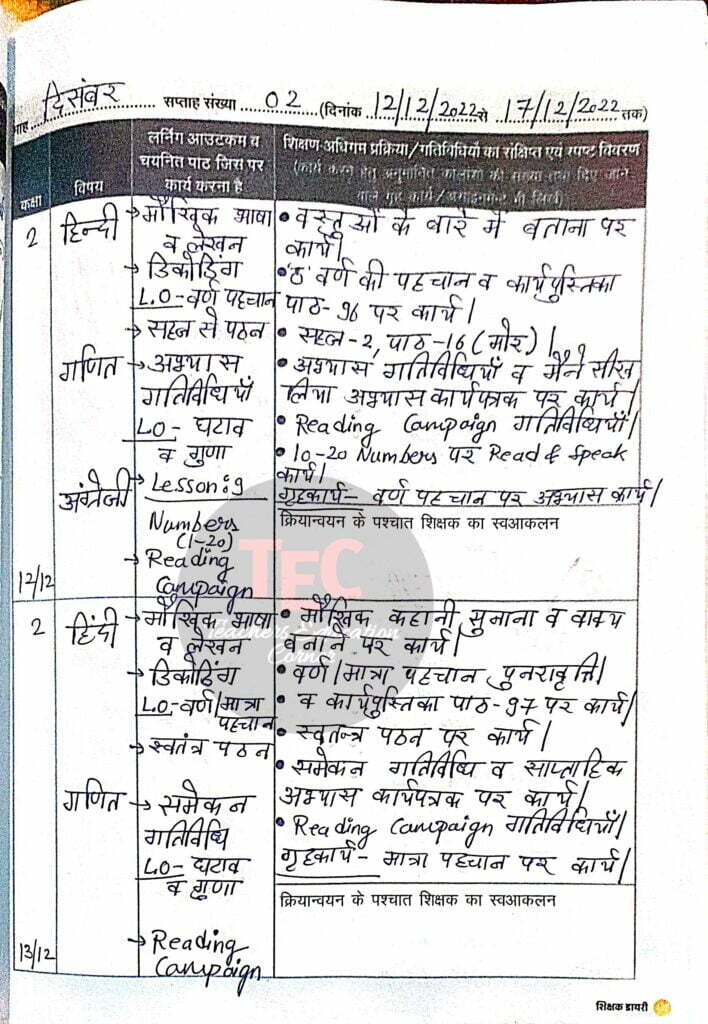 माह दिसंबर सप्ताह संख्या 02 (दिनांक 12/12/2022 से 17/12/2022 तक)
कक्षा
विषय
लर्निंग आउटकम व
चयनित पाठ जिस पर
कार्य करना है
शिक्षण अधिगम प्रक्रिया/गतिविधियों का संक्षिप्त एवं स्पष्ट विवरण
(कार्य करने हेतु अनुमानित कालांश की संख्या तथा दिए जाने
वाले गृह कार्य/असाइनमेंट भी लिखें)
2
हिन्दी
→ मौखिक भाषा
व लेखन
→ डिकोडिंग
L.O - वर्ण पहचान
→ सहज से पठन
• वस्तुओं के बारे में बताना पर
कार्य।
• 'ठ' वर्ण की पहचान व कार्यपुस्तिका
पाठ-96 पर कार्य।
• सहज-2, पाठ-16 (मोर)।
गणित
→ अभ्यास
गतिविधियाँ
LO - घटाव
व गुणा
• अभ्यास गतिविधियाँ व मैंने सीख
लिया अभ्यास कार्यपत्रक पर कार्य।
• Reading Campaign गतिविधियाँ।
• 10-20 Numbers पर Read & Speak
कार्य।
अंग्रेजी
→ Lesson: 9
Numbers
(1-20)
→ Reading
Campaign
गृहकार्य - वर्ण पहचान पर अभ्यास कार्य।
क्रियान्वयन के पश्चात शिक्षक का स्वआकलन
12/12
TEC
Teachers Education
Corner
2
हिंदी
→ मौखिक भाषा
व लेखन
→ डिकोडिंग
LO - वर्ण/मात्रा
पहचान
→ स्वतंत्र पठन
• मौखिक कहानी सुनाना व वाक्य
बनाने पर कार्य।
• वर्ण/मात्रा पहचान पुनरावृत्ति।
• व कार्यपुस्तिका पाठ-97 पर कार्य।
• स्वतन्त्र पठन पर कार्य।
गणित
→ समेकन
गतिविधि
LO - घटाव
व गुणा
→ Reading
Campaign
• समेकन गतिविधि व साप्ताहिक
अभ्यास कार्यपत्रक पर कार्य।
• Reading Campaign गतिविधियाँ।
गृहकार्य - मात्रा पहचान पर कार्य।
क्रियान्वयन के पश्चात शिक्षक का स्वआकलन
13/12
शिक्षक डायरी